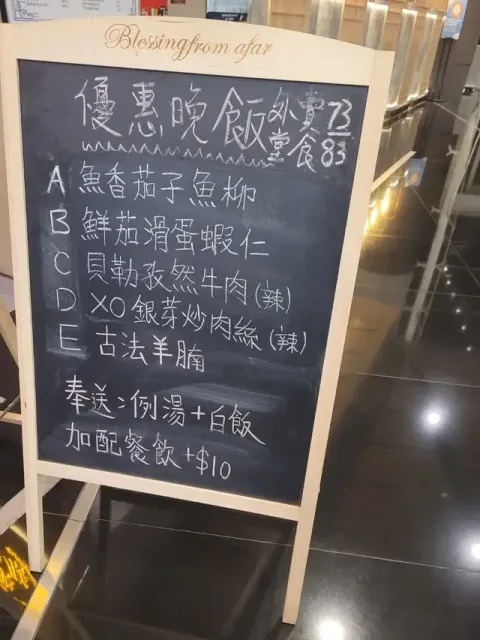 Blessing from afar
優惠晚飯 外賣 73
堂食 83
A 魚香茄子魚柳
B 鮮茄滑蛋蝦仁
C 貝勒孜然牛肉(辣)
D XO銀芽炒肉絲(辣)
E 古法羊腩
奉送:例湯+白飯
加配餐飲+$10